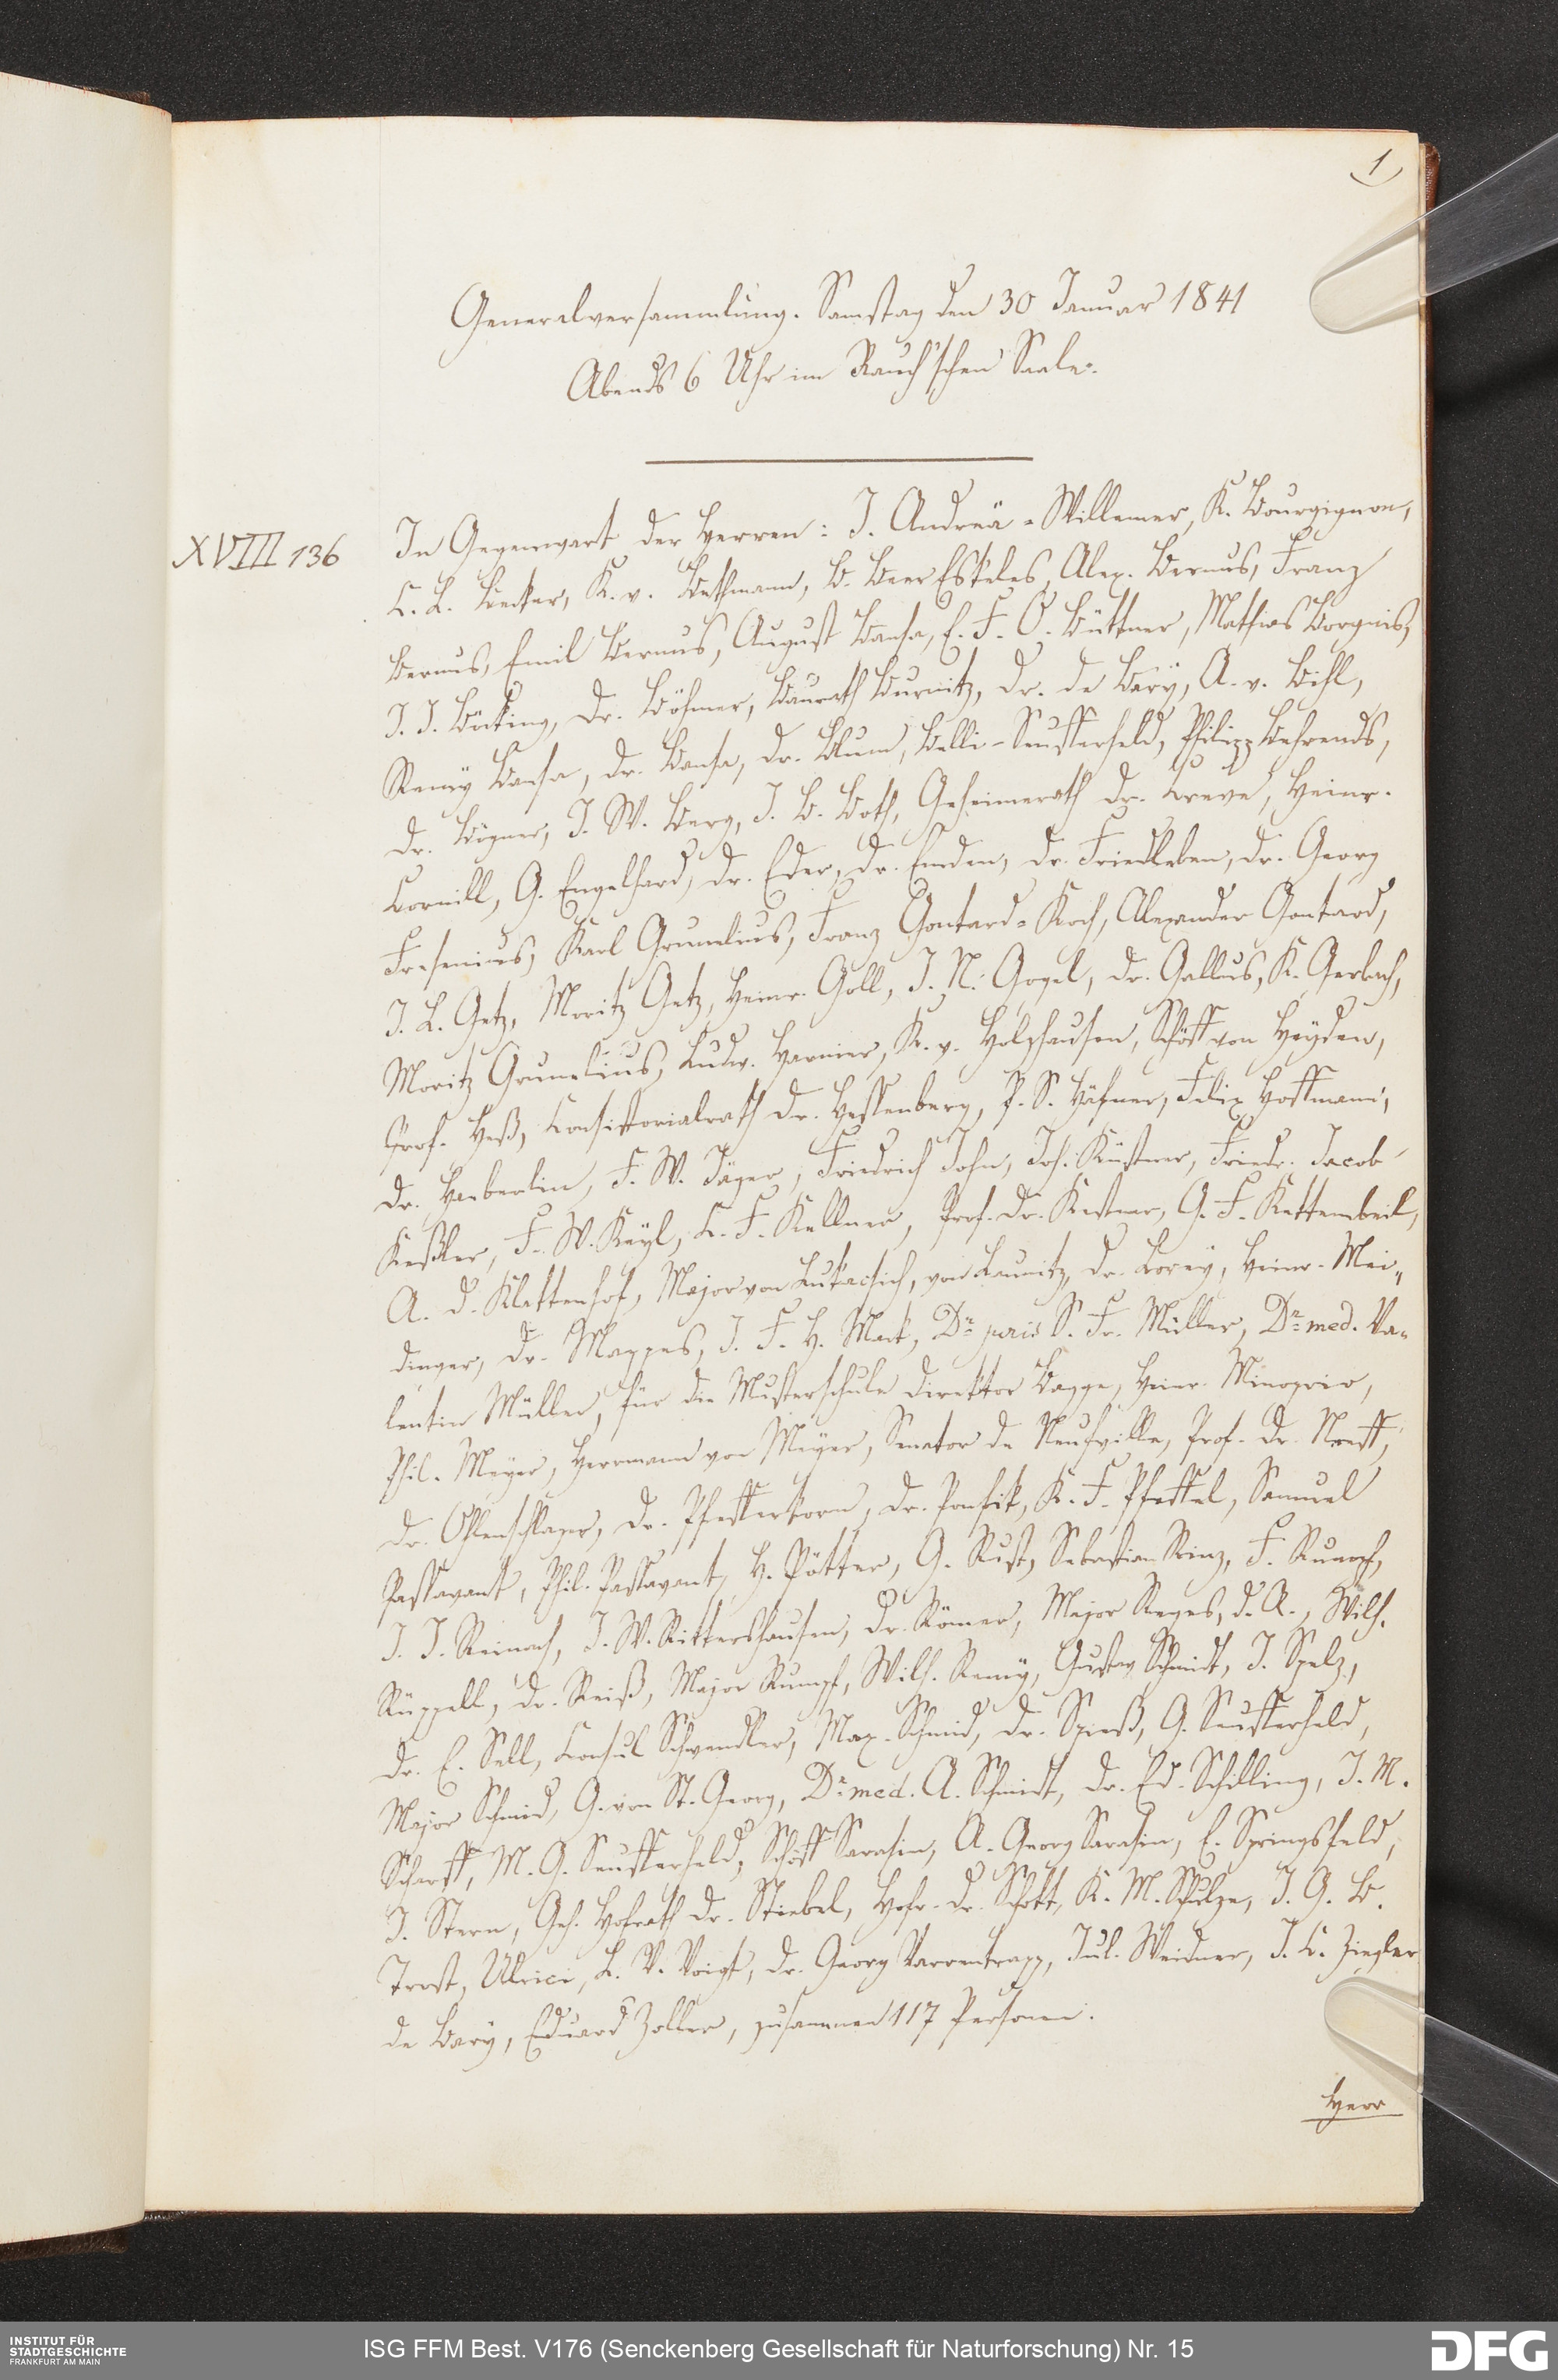 1
Generalversammlung. Samstag den 30 Januar 1841
Abends 6 Uhr im Rauch'schen Saale.
XVIII 136
In Gegenwart der Herren: J. Andreä-Willemer, K. Bourgignon,
C. L. Becker, K. v. Bethmann, B. Beer Eskeles, Alex. Bernus, Franz
Bernus, Emil Bernus, August Bansa, C. F. O. Büttner, Mathias Borgnis,
J. J. Böcking, Dr. Böhmer, Baurath Burnitz, Dr. de Bary, A. v. Bihl,
Remy Bansa, Dr. Bansa, Dr. Blum, Belli-Seufferheld, Philipp Behrends,
Dr. Bögner, J. W. Berg, J. B. Both, Geheimerath Dr. Creve, Heinr.
Cornill, G. Engelhard, Dr. Eder, Dr. Emden, Dr. Friedleben, Dr. Georg
Fresenius, Karl Grunelius, Franz Gontard-Koch, Alexander Gontard,
J. L. Getz, Moritz Getz, Heinr. Goll, J. N. Gogel, Dr. Gallus, K. Gerlach,
Moritz Grunelius, Ludw. Harnier, K. v. Holzhausen, Schöff von Heyden,
Prof. Heß, Consistorialrath Dr. Hessenberg, P. S. Häfner, Felix Hoffmann,
Dr. Haeberlin, F. W. Jäger, Friedrich John, Joh. Küstner, Friedr. Jacob
Keßler, F. W. Keyl, C. F. Kellner, Prof. Dr. Kestner, G. F. Kettembeil,
A. D. Klattenhof, Major von Lukacsich, von Launitz, Dr. Lorey, Heinr. Mei„
dinger, Dr. Mappes, J. F. H. Mack, Dr juris S. Fr. Müller, Dr med. Va„
lentin Müller, für die Musterschule Direktor Bagge, Heinr. Minoprio,
Phil. Meyer, Herrmann von Meyer, Senator de Neufville, Prof. Dr. Neeff,
Dr. Ohlenschlager, Dr. Pfefferkorn, Dr. Ponfik, K. F. Pfeffel, Samuel
Passavant, Phil. Passavant, H. Pötter, G. Rust, Sebastian Rinz, F. Rumpf,
J. J. Reinach, J. W. Rittershausen, Dr. Römer, Major Reges, d. R., Wilh.
Rüppell, Dr. Reiß, Major Rumpf, Wilh. Remy, Gustav Schmidt, J. Spelz,
Dr. E. Sell, Consul Schwendler, Max. Schmid, Dr. Spieß, G. Seufferheld,
Major Schmid, G. von St. George, Dr med. A. Schmidt, Dr. Ed. Schilling, J. M.
Scharff, M. G. Seufferheld, Schöff Sarasin, A. Georg Sarasin, E. Springsfeld,
J. Stern, Geh. Hofrath Dr. Stiebel, Hofr. Dr. Schott, K. M. Schulze, J. G. B.
Trost, Ulrici, L. V. Voigt, Dr. Georg Varrentrapp, Jul. Weidner, J. C. Ziegler
de Bary, Eduard Zoller, zusammen 117 Personen.
Herr
INSTITUT FÜR
STADTGESCHICHTE
FRANKFURT AM MAIN
ISG FFM Best. V176 (Senckenberg Gesellschaft für Naturforschung) Nr. 15
DFG